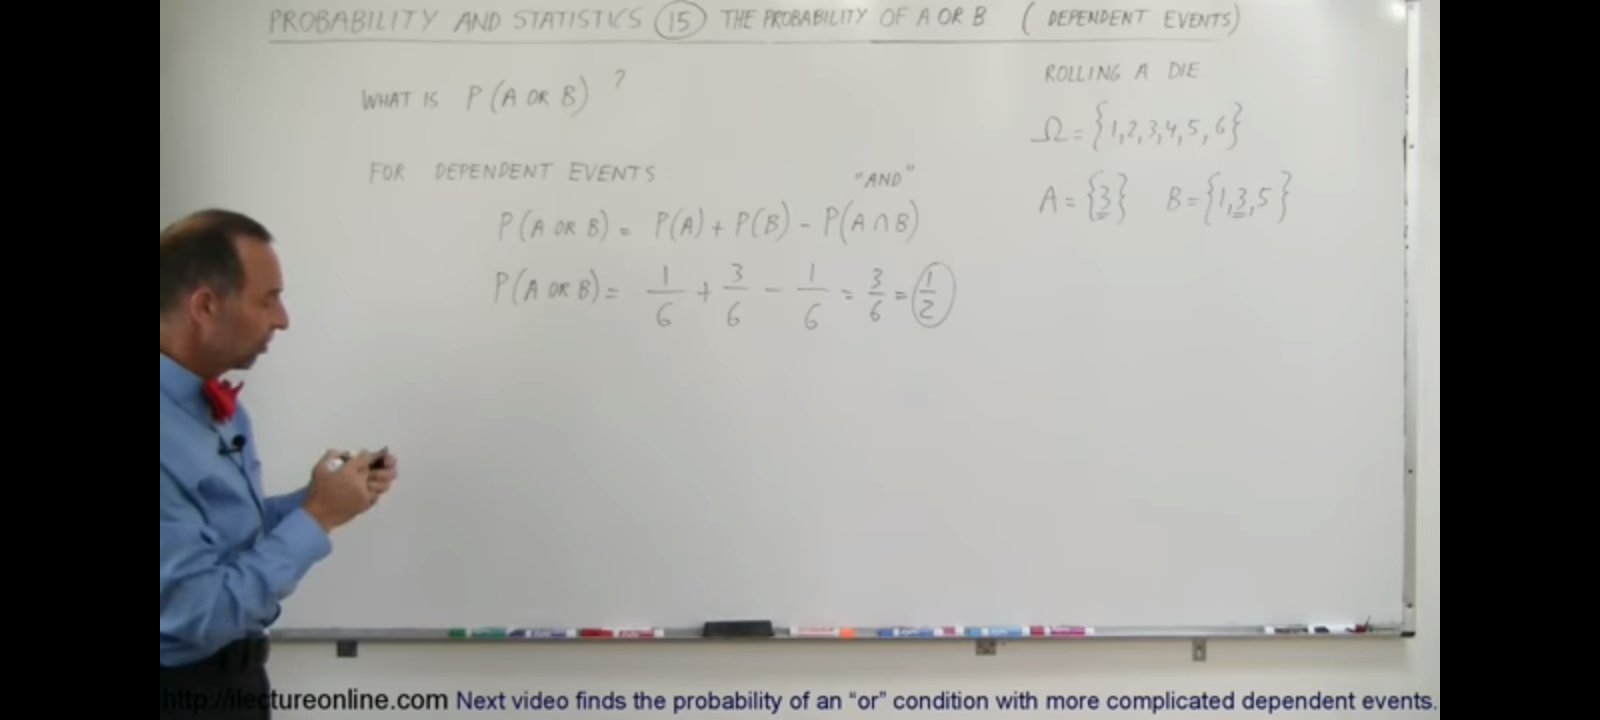 PROBABILITY AND STATISTICS 15 THE PROBABILITY OF A OR B ( DEPENDENT EVENTS)
WHAT IS P(A OR B) ?
FOR DEPENDENT EVENTS
"AND"
P(A OR B) = P(A) + P(B) - P(A ∩ B)
P(A OR B) = 1/6 + 3/6 - 1/6 = 3/6 = 1/2
ROLLING A DIE
Ω = {1,2,3,4,5,6}
A = {3} B = {1,3,5}
http://ilectureonline.com Next video finds the probability of an “or” condition with more complicated dependent events.